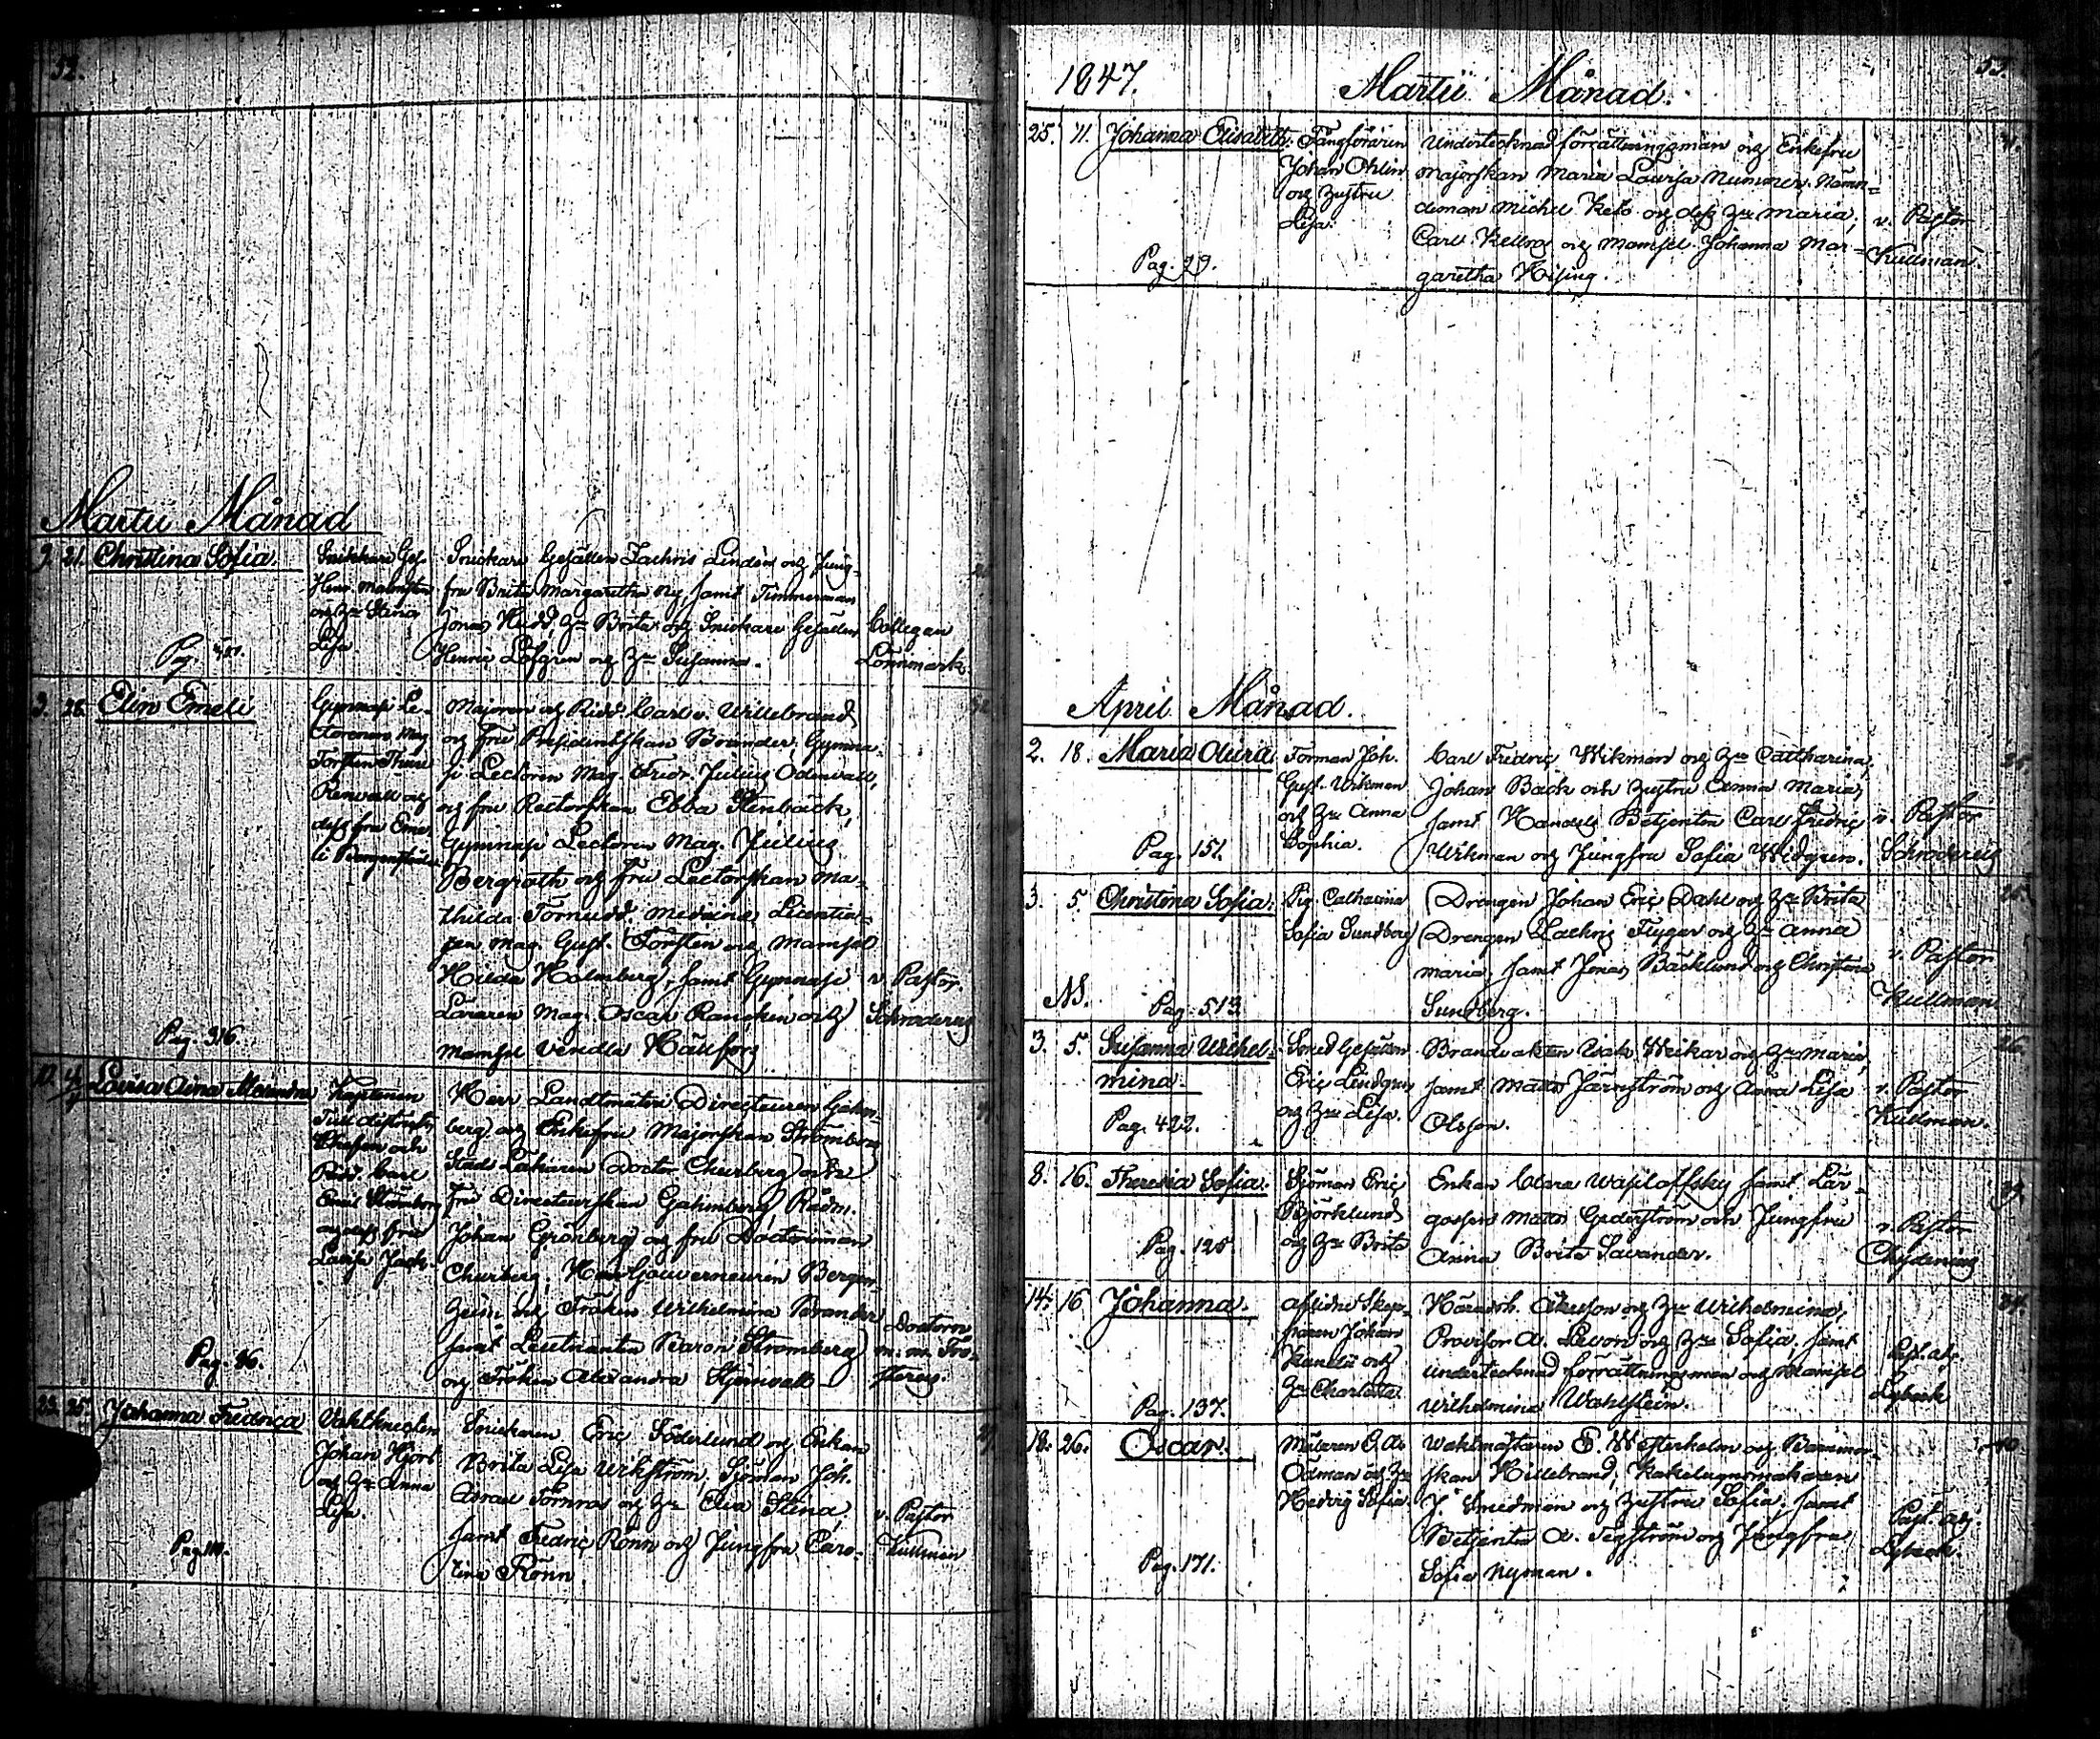 52.
Martii Månad
9. 21. Christina Sofia.
Snickare Ges.
Henr. Malmsten
och Hu Stina
Lisa.
Snickare Gesällen Zachris Lindén och Jung-
fru Brita Margaretha Ny, samt Timmerman
Jonas Hudd, Hu Brita och Snickare Gesällen
Henric Löfgren och Hu Susanna.
Collegan
Lönnmark
Pag.
3. 28. Elin Emeli
Gymnasii Le-
ctoren, Mag.
Torsten Thure
Renvall och
dess fru Eme-
li
Majoren och Ridd. Carl v. Willebrand
och Fru Presidentskan Brander. Gymna-
sii Lectoren Mag. Fridr. Julius Odenvall,
och fru Rectorskan Ebba Stenbäck,
Gymnasii Lectoren Mag. Julius
Bergroth och Fru Lectorskan Ma-
thilda Törnudd. Medicine Licentia-
ten Mag. Gust. Torsten och Mamsel
Hilda Holmberg, samt Gymnasii
Läraren Mag. Oscar Rancken och
Mamsel Vendla Hällfors
v. Pastor
Schroderus
Pag. 316.
Lovisa Aina
Kaptenen
Tull districts
Chefen och
Ridd. Carl
Emil Strömborg
och dess fru
Lovisa Jack.
Herr Landtmäteri Directeuren Gahm-
berg och Enkefru Majorskan Stromberg
Stads Läkaren Doctor Churberg och
Fru Directeurskan Gahmberg, Rådm.
Johan Grönberg och fru Doctorinnan
Churberg, Herr Gouverneuren Bergen-
heim och Fröken Wilhelmina Brander
samt Lieutnanten Baron Stromberg
och Fröken Alexandra Stjernvall
Doctorn
m. m. Fro-
sterus.
Pag. 86.
23. 25. Johanna Fredrica
Vaktknegten
Johan Hjort
och Hu Anna
Lisa.
Snickaren Eric Söderlund och Enkan
Brita Lisa Wikström, Sjöman Joh.
Törnroos och Hu Eva Stina,
samt Fredric Rönn och Jungfru Caro-
lina Rönn
v. Pastor
Kullman
Pag.
1847. Martii Månad. 53.
25. 11. Johanna Elisabeth.
Fångföraren
Johan Ohlin
och Hustru
Lisa.
Undertecknad förrättningsman och Enkefru
Majorskan Maria Lovisa Nummer. Nämn-
deman Michel Keto och dess Hu Maria,
Carl Kellroos och Mamsel Johanna Mar-
garetha Hising.
v. Pastor
Kullman
Pag. 29.
April Månad.
2. 18. Maria Auria.
Forman Joh.
Gust. Wikman
och Hu Anna
Sophia.
Carl Fredric Wikman och Hu Cattharina,
Johan Back och Hustru Anna Maria,
samt Handels Betjenten Carl Fredric
Wikman och Jungfru Sofia Widgren.
v. Pastor
Schroderus
Pag. 151.
3. 5. Christina Sofia.
Pig. Catharina
Sofia Sundberg
Drengen Johan Eric Dahl och Hu Brita
Drengen Zachris Flygar och Hu Anna
Maria, samt Jonas Bäcklund och Christina
Sundberg.
v. Pastor
Kullman
Pag. 513.
3. 5. Susanna Wilhel-
mina.
Smed Gesällen
Eric Lindgren
och Hu Lisa.
Brandvakten Isak Weikar och Hu Maria,
samt Matts Järnström och Anna Lisa
Olsson.
v. Pastor
Kullman.
Pag. 422.
8. 16. Theresia Sofia.
Sjöman Eric
Björklund
och Hu Brita
Enkan Clara Wasiloffsky samt Lär-
gossen Matts Gederström och Jungfru
Anna Brita Savander.
v. Pastor
Chydenius
Pag. 125
14. 16. Johanna.
Afsidne Skep-
paren Johan
och
Hu Charlotta
Häradsh. Åkesson och Hu Wilhelmina,
Provisor A. Levon och Hu Sofia, samt
undertecknad förrättningsman och Mamsel
Wilhelmina Wahlstein.
Past. adj.
Lybeck
Pag. 137.
18. 26. Oscar.
Målaren
Ödman och Hu
Hedvig Sofia.
Waktmästaren E. Westerholm och Barnmor-
skan Hillebrand, Kakelugnsmakaren
J. Smedman och Hustru Sofia, samt
Betjenten A. Segström och Jungfru
Sofia Nyman.
Past. adj.
Lybeck.
Pag. 171.